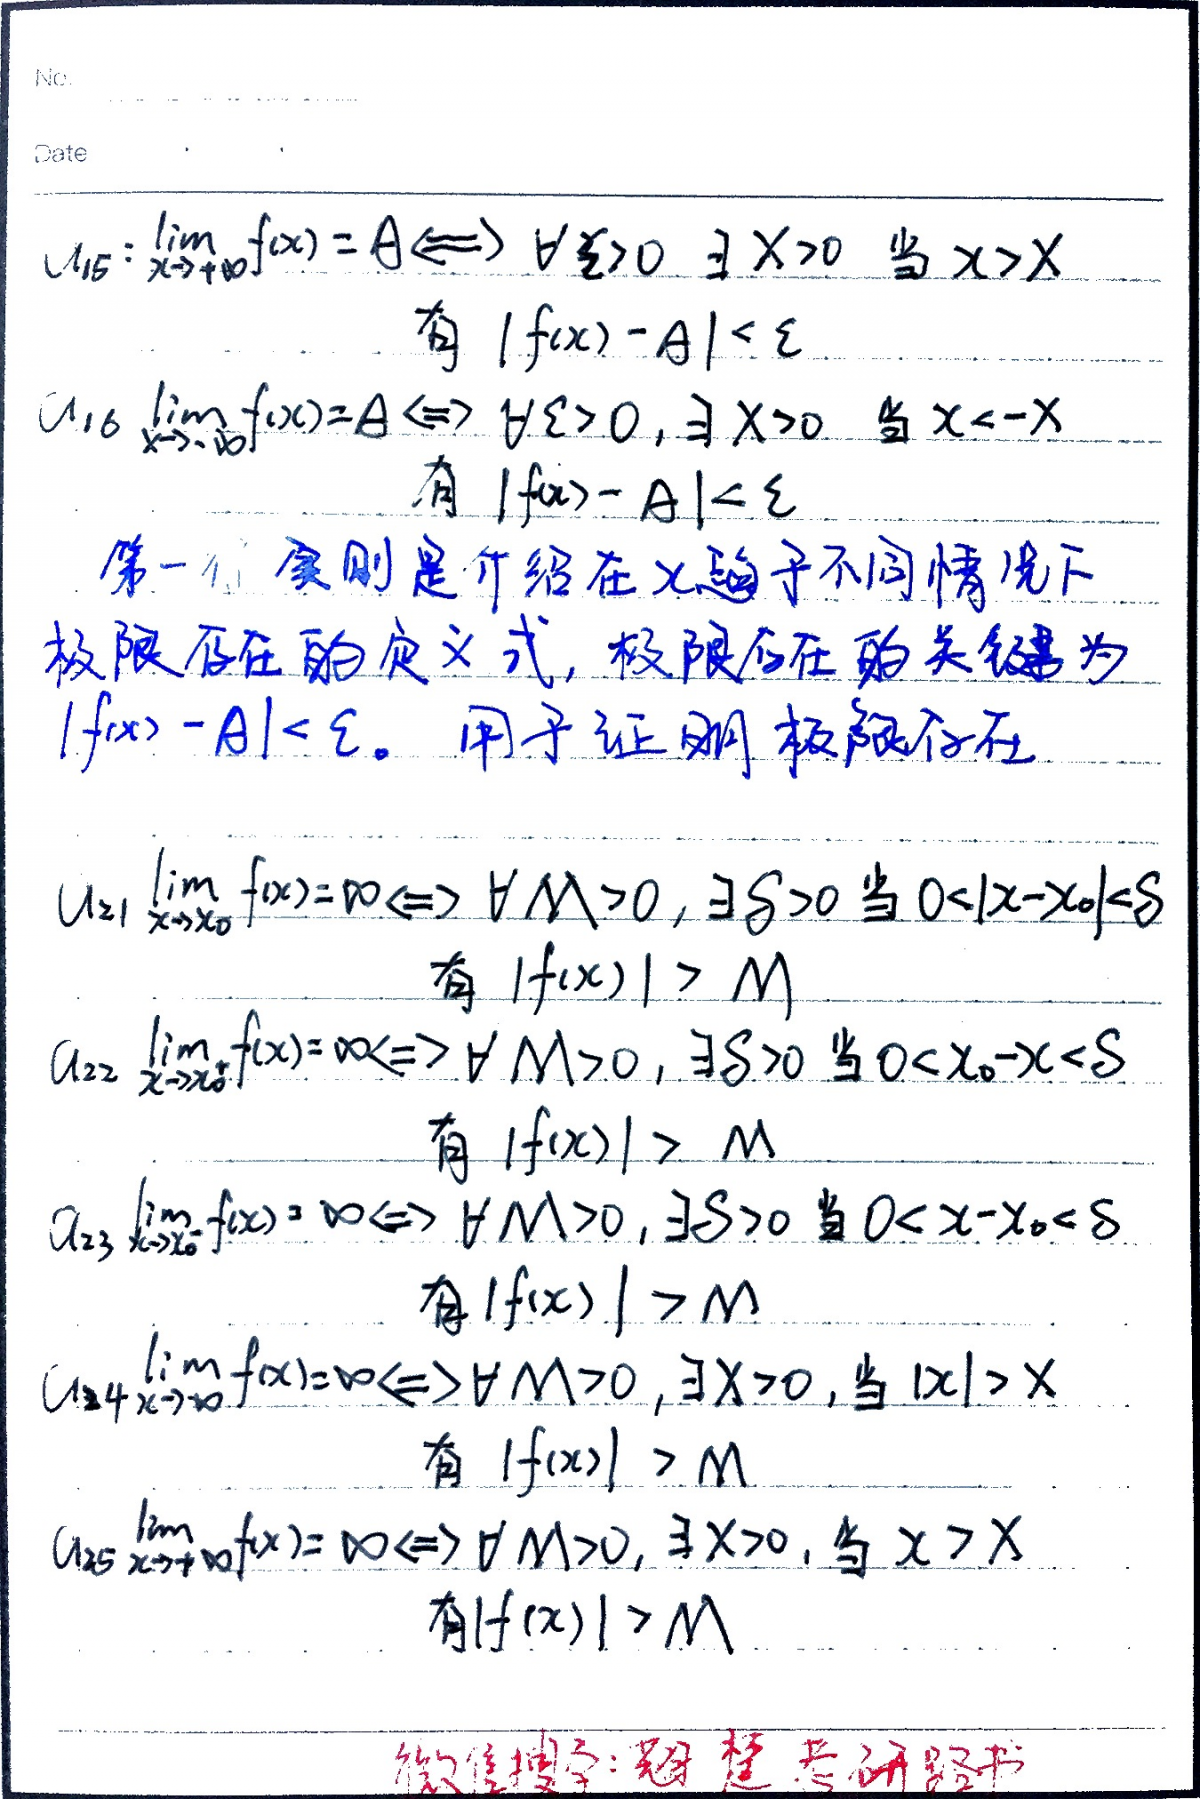 No.
Date
a₁₅: lim x→+∞ f(x) = A ⟺ ∀ε>0 ∃X>0 当 x>X
有 |f(x)-A|<ε
a₁₆ lim x→-∞ f(x)=A ⟺ ∀ε>0, ∃X>0 当 x<-X
有 |f(x)-A|<ε
第一 则是介绍在x趋于不同情况下
极限存在的定义式, 极限存在的关键为
|f(x)-A|<ε。 用于证明极限存在
a₂₁ lim x→x₀ f(x)=∞ ⟺ ∀M>0, ∃δ>0 当 0<|x-x₀|<δ
有 |f(x)| > M
a₂₂ lim x→x₀⁺ f(x)=∞ ⟺ ∀M>0, ∃δ>0 当 0<x₀-x<δ
有 |f(x)| > M
a₂₃ lim x→x₀⁻ f(x)=∞ ⟺ ∀M>0, ∃δ>0 当 0<x-x₀<δ
有 |f(x)| > M
a₂₄ lim x→∞ f(x)=∞ ⟺ ∀M>0, ∃X>0, 当 |x|>X
有 |f(x)| > M
a₂₅ lim x→+∞ f(x)=∞ ⟺ ∀M>0, ∃X>0, 当 x>X
有 |f(x)| > M
微信搜 : 楚 考研 书